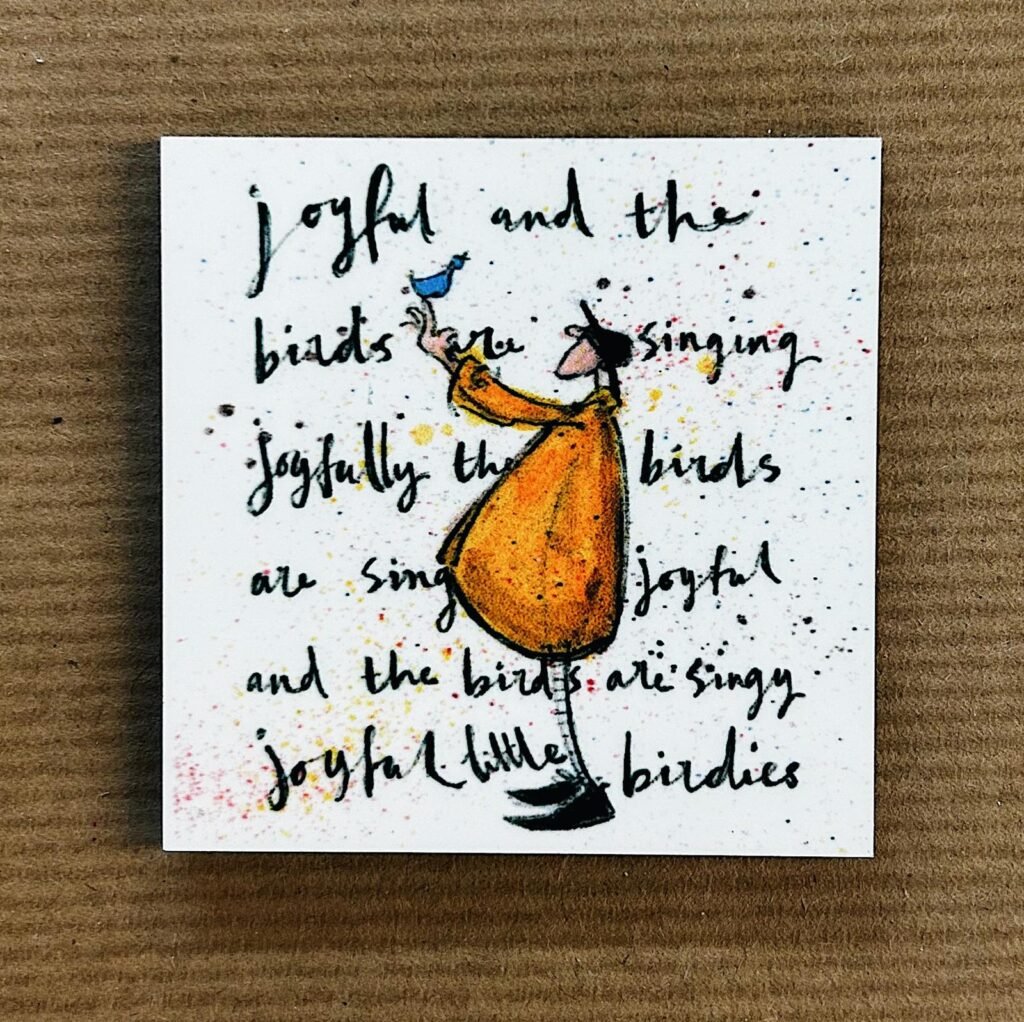 joyful and the
birds are singing
joyfully the birds
are sing joyful
and the birds are singy
joyful little birdies